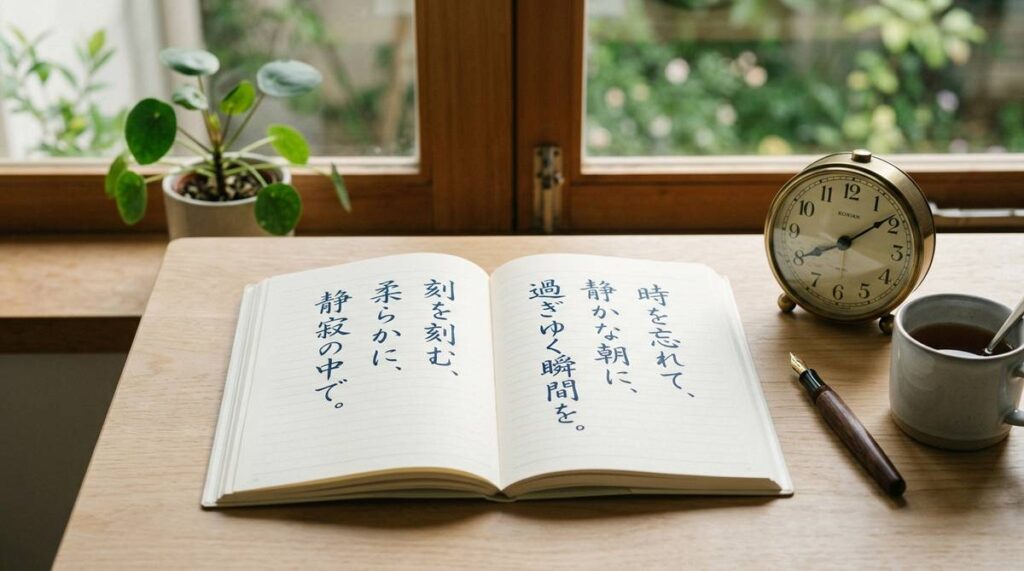 時を忘れて、
静かな朝に、
過ぎゆく瞬間を。
刻を刻む、
柔らかに、
静寂の中で。
12
1
2
3
4
5
6
7
8
9
10
11